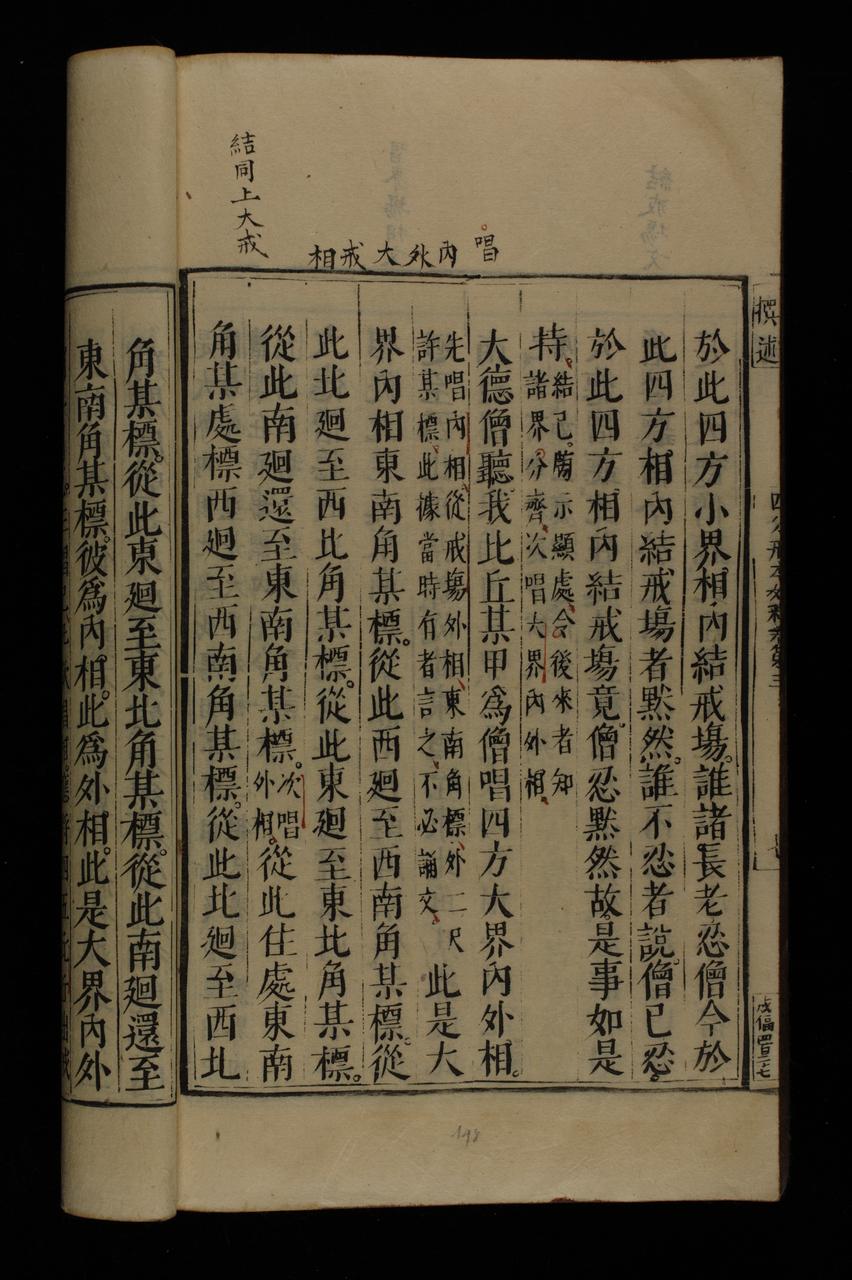 撰述
於此四方小界相內結戒塲。誰諸長老忍僧今於
此四方相內結戒塲者默然。誰不忍者說。僧已忍。
於此四方相內結戒塲竟。僧忍默然故。是事如是
持。結已牓示顯處。令後來者知
諸界分齊。次唱大界內外相。
大德僧聽。我比丘某甲爲僧唱四方大界內外相。
先唱內相。從戒塲外相。東南角標。外二尺
許某標。此據當時有者言之。不必誦文。此是大
界內相東南角某標。從此西廻至西南角某標。從
此北廻至西北角某標。從此東廻至東北角某標。
從此南廻還至東南角某標。次唱
外相。從此住處東南
角某處標西廻至西南角某標。從此北廻至西北
唱內外大戒相
結同上大戒
角某標。從此東廻至東北角某標。從此南廻還至
東南角某標。彼爲內相。此爲外相。此是大界內外
198